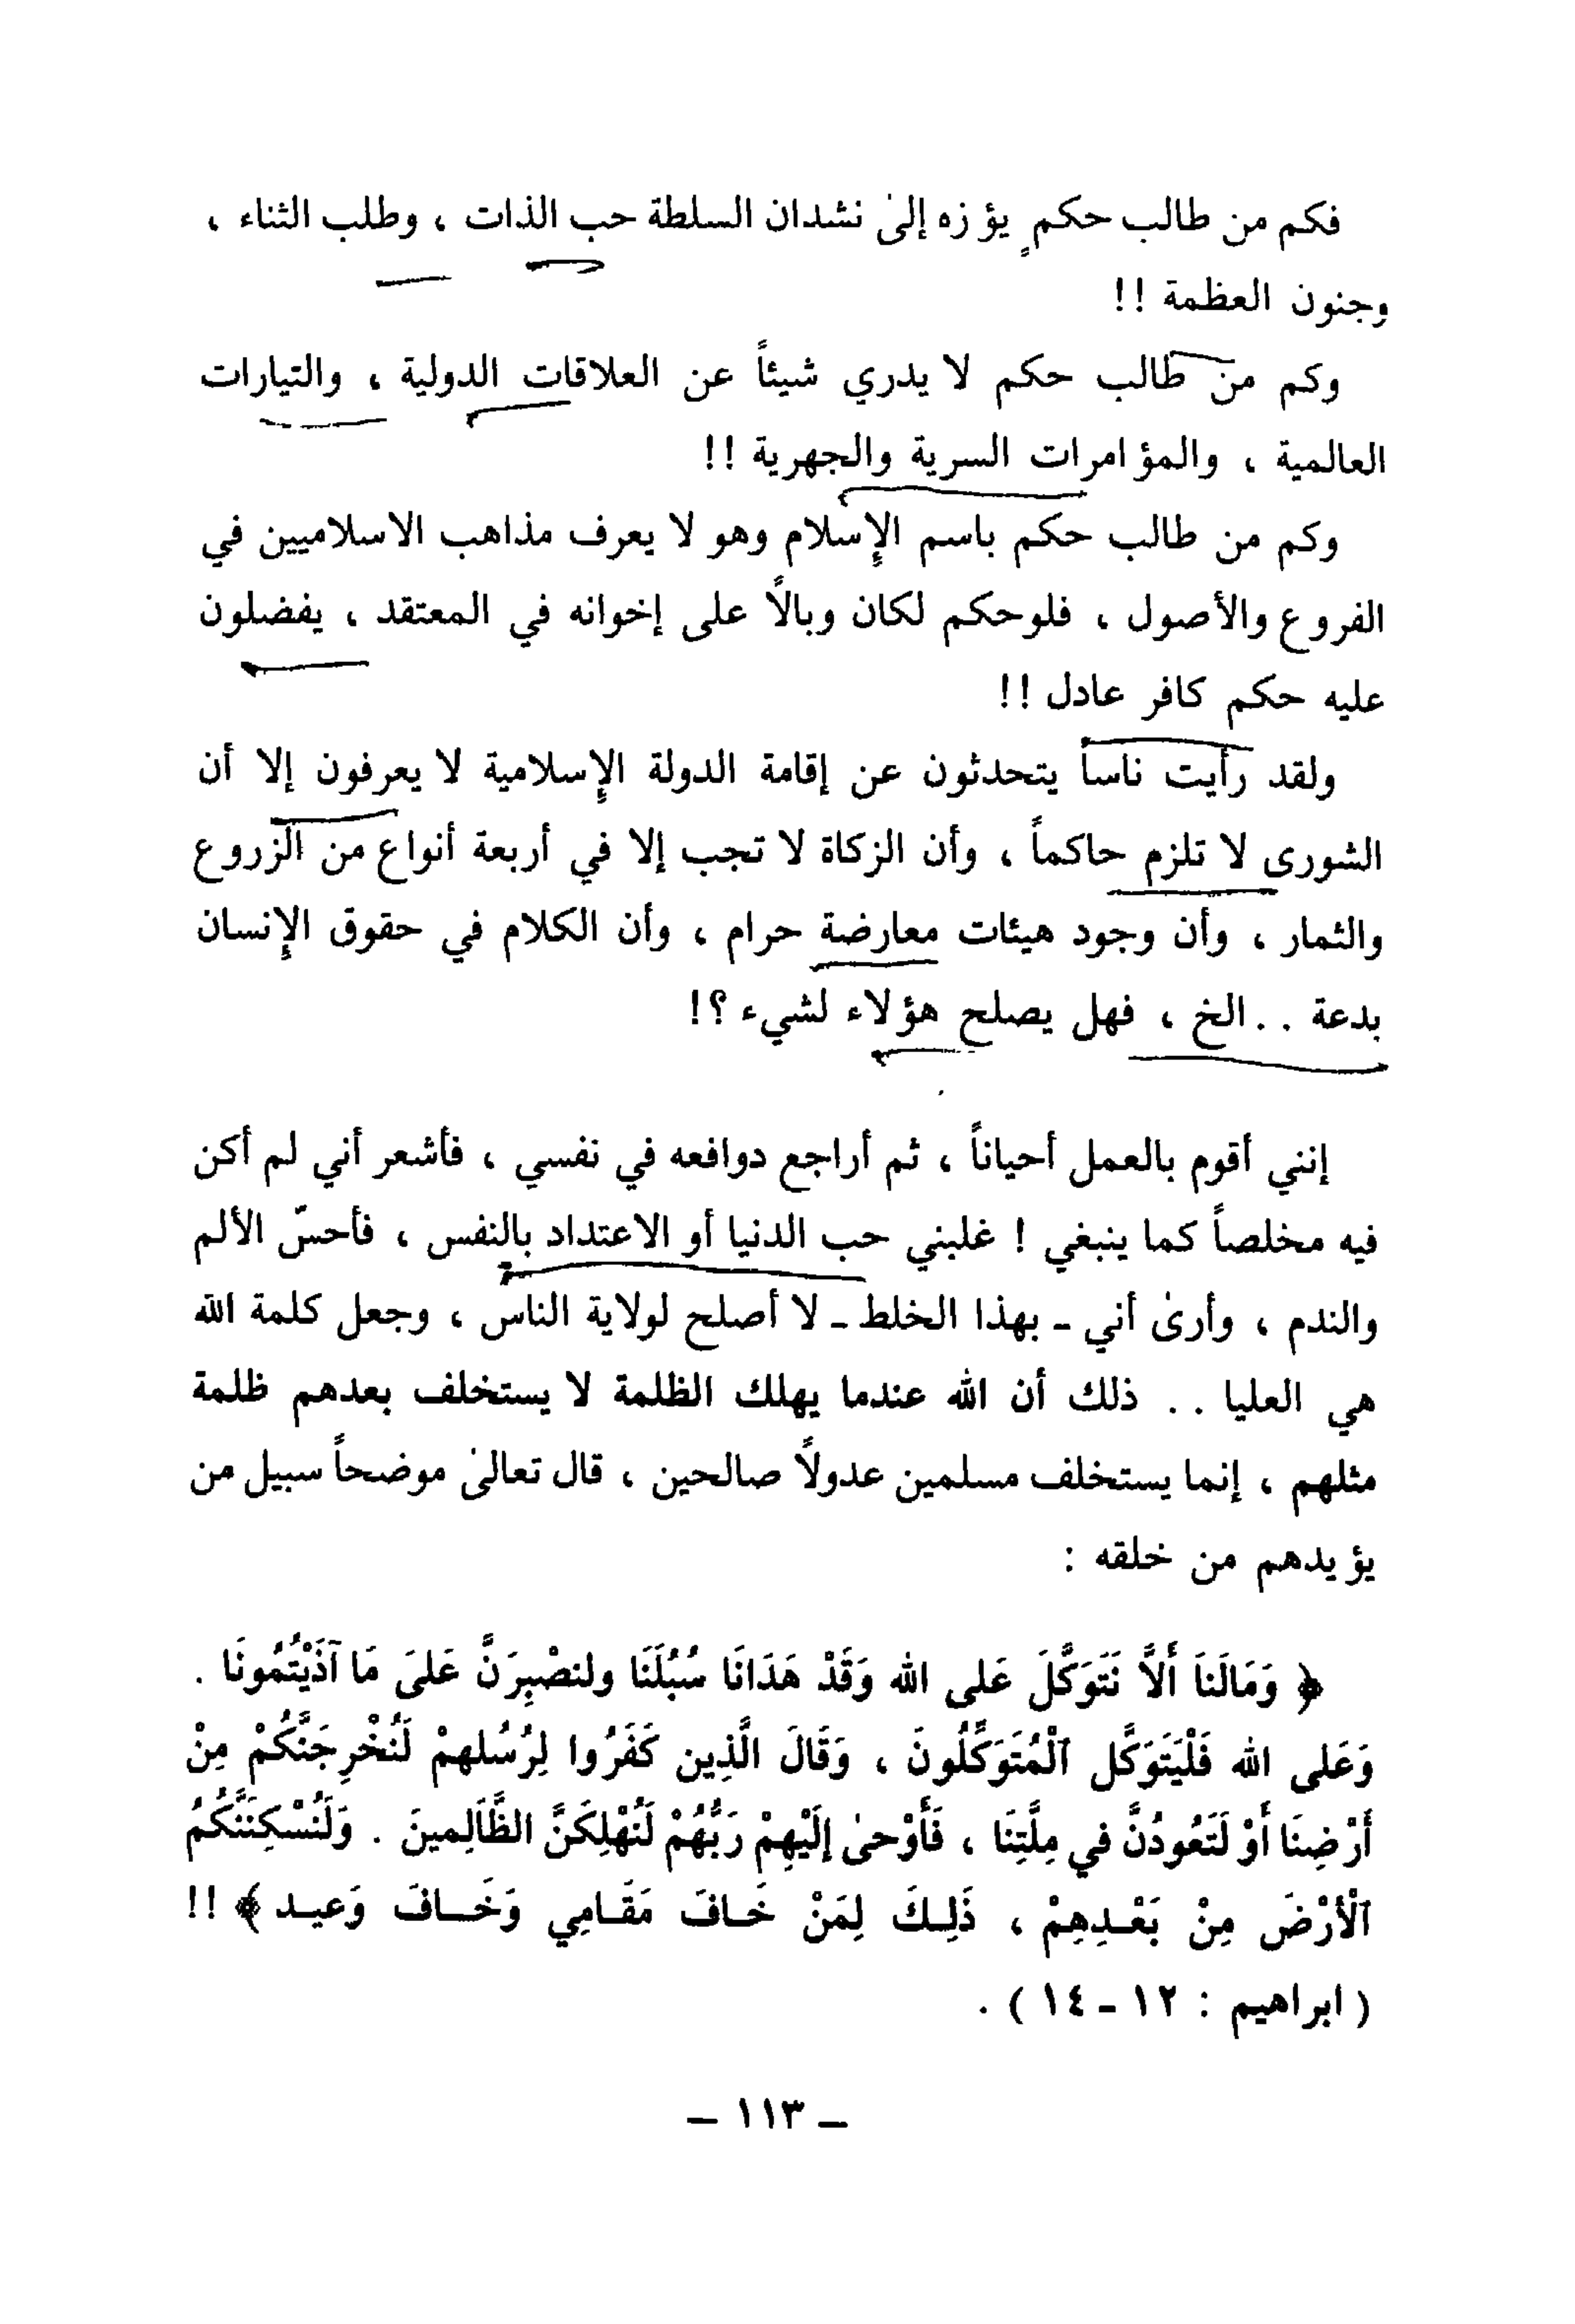 فكم من طالب حكمٍ يؤزه إلىٰ نشدان السلطة حب الذات ، وطلب الثناء ،
وجنون العظمة !!
وكم من طالب حكم لا يدري شيئاً عن العلاقات الدولية ، والتيارات
العالمية ، والمؤامرات السرية والجهرية !!
وكم من طالب حكم باسم الإسلام وهو لا يعرف مذاهب الاسلاميين في
الفروع والأصول ، فلوحكم لكان وبالاً على إخوانه في المعتقد ، يفضلون
عليه حكم كافر عادل !!
ولقد رأيت ناساً يتحدثون عن إقامة الدولة الإسلامية لا يعرفون إلا أن
الشورى لا تلزم حاكماً ، وأن الزكاة لا تجب إلا في أربعة أنواع من الزروع
والثمار ، وأن وجود هيئات معارضة حرام ، وأن الكلام في حقوق الإنسان
بدعة . . الخ ، فهل يصلح هؤلاء لشيء ؟!
إنني أقوم بالعمل أحياناً ، ثم أراجع دوافعه في نفسي ، فأشعر أني لم أكن
فيه مخلصاً كما ينبغي ! غلبني حب الدنيا أو الاعتداد بالنفس ، فأحسّ الألم
والندم ، وأرىٰ أني ـ بهذا الخلط ـ لا أصلح لولاية الناس ، وجعل كلمة الله
هي العليا . . ذلك أن الله عندما يهلك الظلمة لا يستخلف بعدهم ظلمة
مثلهم ، إنما يستخلف مسلمين عدولاً صالحين ، قال تعالىٰ موضحاً سبيل من
يؤيدهم من خلقه :
﴿ وَمَالَناَ أَلاَّ نَتَوَكَّلَ عَلى الله وَقَدْ هَدَانَا سُبُلَنَا ولنصْبِرَنَّ عَلىَ مَا آذَيْتُمُونَا .
وَعَلى الله فَلْيَتَوَكَّل ٱلْمُتَوَكِّلُونَ ، وَقَالَ الَّذِين كَفَرُوا لِرُسُلهمْ لَنُخْرِجَنَّكُمْ مِنْ
أَرْضِنَا أَوْ لَتَعُودُنَّ في مِلَّتِنَا ، فَأَوْحىٰ إلَيْهِمْ رَبُّهُمْ لَنُهْلِكَنَّ الظَّالِمينَ . وَلَنُسْكِنَنَّكُمُ
ٱلْأرْضَ مِنْ بَعْـدِهِمْ ، ذَلِـكَ لِمَنْ خَـافَ مَقَـامِي وَخَــافَ وَعيـد ﴾ !!
( ابراهيم : ١٢ ـ ١٤ ) .
ـ ١١٣ ـ